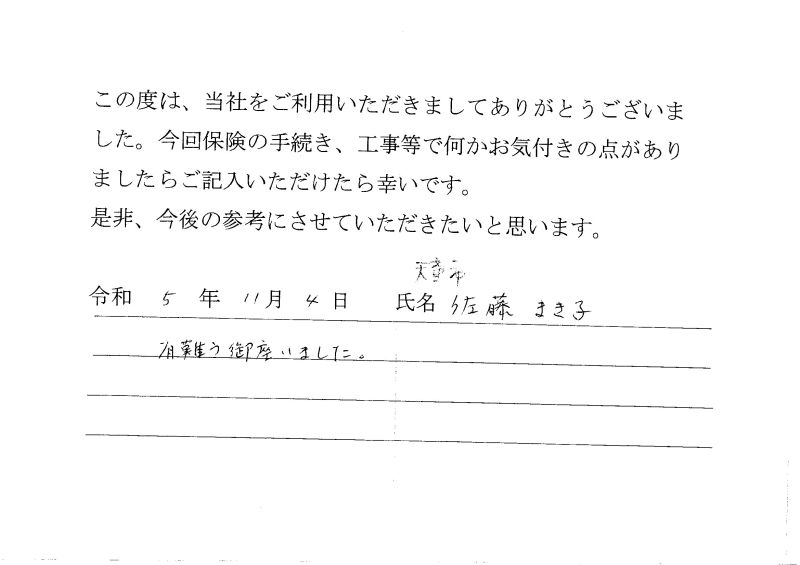 この度は、当社をご利用いただきましてありがとうございま
した。今回保険の手続き、工事等で何かお気付きの点があり
ましたらご記入いただけたら幸いです。
是非、今後の参考にさせていただきたいと思います。
天童市
令和 5 年 11月 4日 氏名 佐藤 まき子
有難う御座いました。